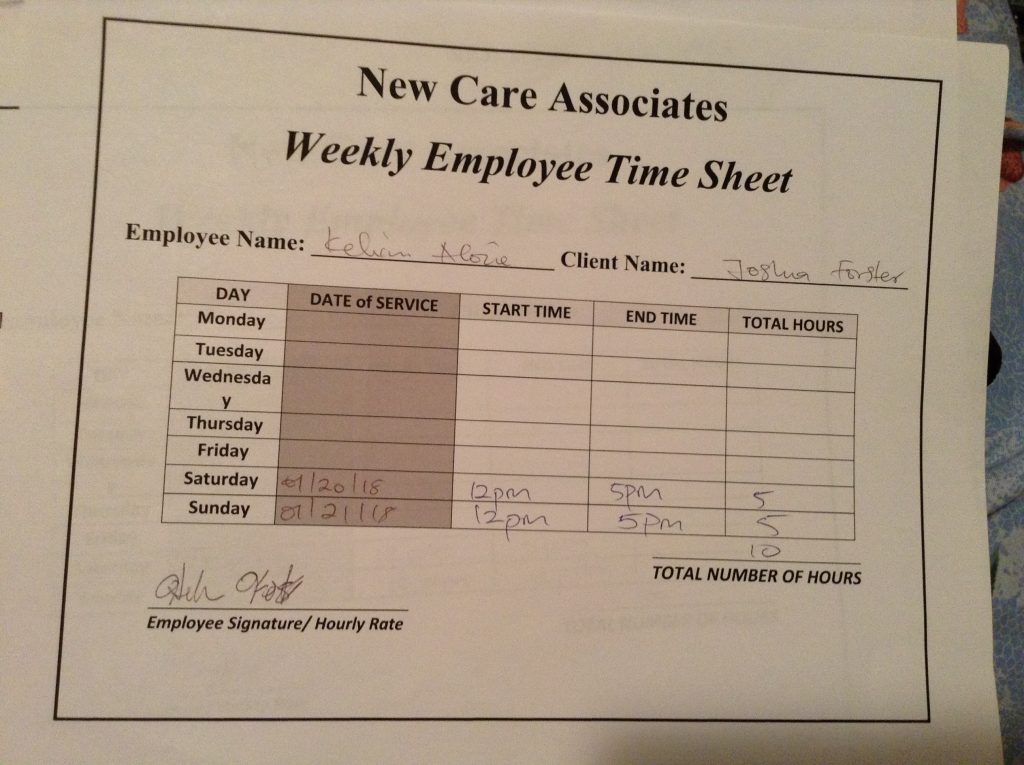 New Care Associates
Weekly Employee Time Sheet
Employee Name: Kelvin Alozie Client Name: Joshua Forster
DAY DATE of SERVICE START TIME END TIME TOTAL HOURS
Monday
Tuesday
Wednesda
y
Thursday
Friday
Saturday 01/20/18 12pm 5pm 5
Sunday 01/21/18 12pm 5pm 5
10
TOTAL NUMBER OF HOURS
Employee Signature/ Hourly Rate